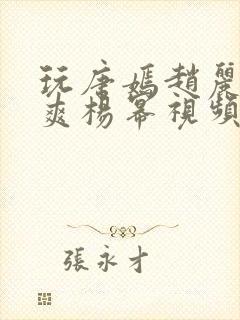 玩唐嫣趙麗
爽楊冪視頻
張永才